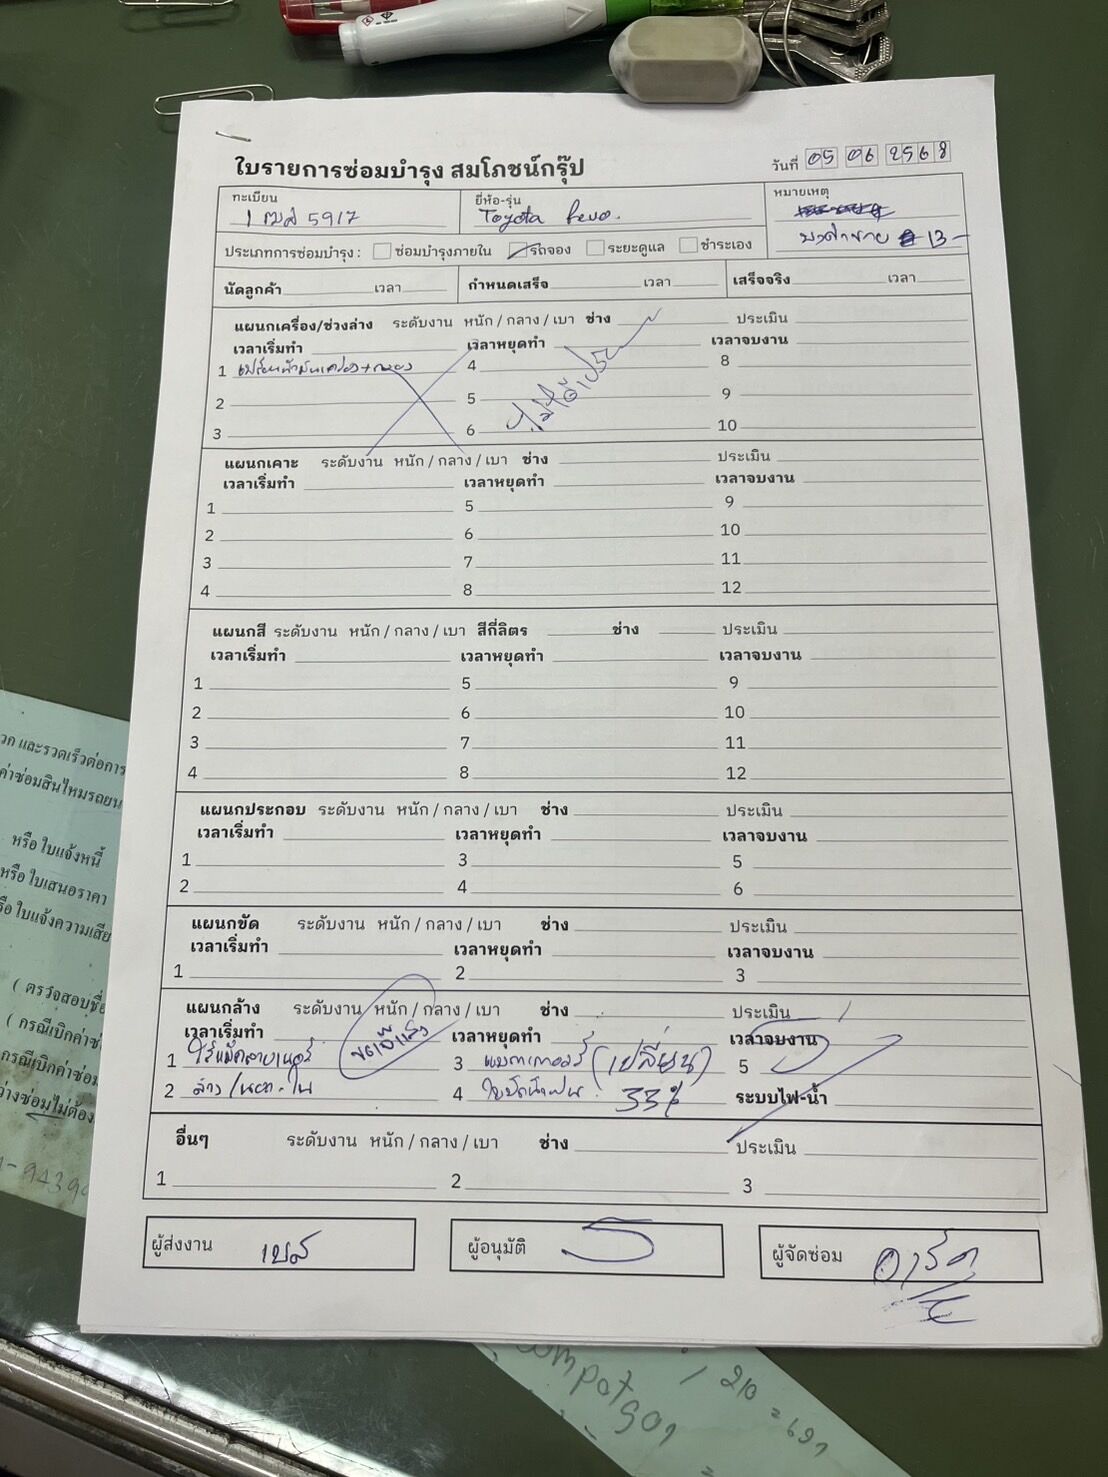 ใบรายการซ่อมบำรุง สมโภชน์กรุ๊ป
วันที่ 05 06 2568
ทะเบียน
5917
ยี่ห้อ-รุ่น
Toyota Revo.
หมายเหตุ
13-
ประเภทการซ่อมบำรุง : ซ่อมบำรุงภายใน รถจอง ระยะดูแล ชำระเอง
นัดลูกค้า เวลา กำหนดเสร็จ เวลา เสร็จจริง เวลา
แผนกเครื่อง/ช่วงล่าง ระดับงาน หนัก / กลาง / เบา ช่าง ประเมิน
เวลาเริ่มทำ เวลาหยุดทำ เวลาจบงาน
1 เปลี่ยนถ่ายน้ำมันเครื่อง+กรอง 4 8
2 5 9
3 6 10
แผนกเคาะ ระดับงาน หนัก / กลาง / เบา ช่าง ประเมิน
เวลาเริ่มทำ เวลาหยุดทำ เวลาจบงาน
1 5 9
2 6 10
3 7 11
4 8 12
แผนกสี ระดับงาน หนัก / กลาง / เบา สีกี่ลิตร ช่าง ประเมิน
เวลาเริ่มทำ เวลาหยุดทำ เวลาจบงาน
1 5 9
2 6 10
3 7 11
4 8 12
แผนกประกอบ ระดับงาน หนัก / กลาง / เบา ช่าง ประเมิน
เวลาเริ่มทำ เวลาหยุดทำ เวลาจบงาน
1 3 5
2 4 6
แผนกขัด ระดับงาน หนัก / กลาง / เบา ช่าง ประเมิน
เวลาเริ่มทำ เวลาหยุดทำ เวลาจบงาน
1 2 3
แผนกล้าง ระดับงาน หนัก / กลาง / เบา ช่าง ประเมิน
เวลาเริ่มทำ เวลาหยุดทำ เวลาจบงาน
1 3 แบตเตอรี่ (เปลี่ยน) 5
2 ล้าง / นอก - ใน 4 ใบปัดน้ำฝน 33% ระบบไฟ-น้ำ
อื่นๆ ระดับงาน หนัก / กลาง / เบา ช่าง ประเมิน
1 2 3
ผู้ส่งงาน เบส ผู้อนุมัติ ผู้จัดซ่อม
วก และรวดเร็วต่อการ
ค่าซ่อมสินไหมรถยน
หรือ ใบแจ้งหนี้
หรือ ใบเสนอราคา
รือ ใบแจ้งความเสีย
( ตรวจสอบชื่อ
( กรณีเบิกค่าซ่
กรณีเบิกค่าซ่อม
ว่างซ่อมไม่ต้อง